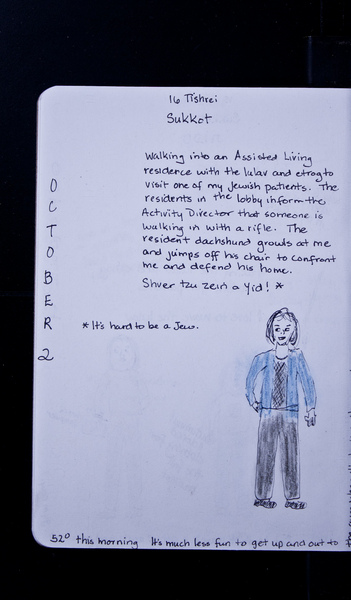 16 Tishrei
Sukkot
Walking into an Assisted Living
residence with the lulav and etrog to
visit one of my Jewish patients. The
residents in the lobby inform the
Activity Director that someone is
walking in with a rifle. The
resident dachshund growls at me
and jumps off his chair to confront
me and defend his home.
Shver tzu zein a Yid! *
OCTOBER 2
* It's hard to be a Jew.
52° this morning It's much less fun to get up and out to